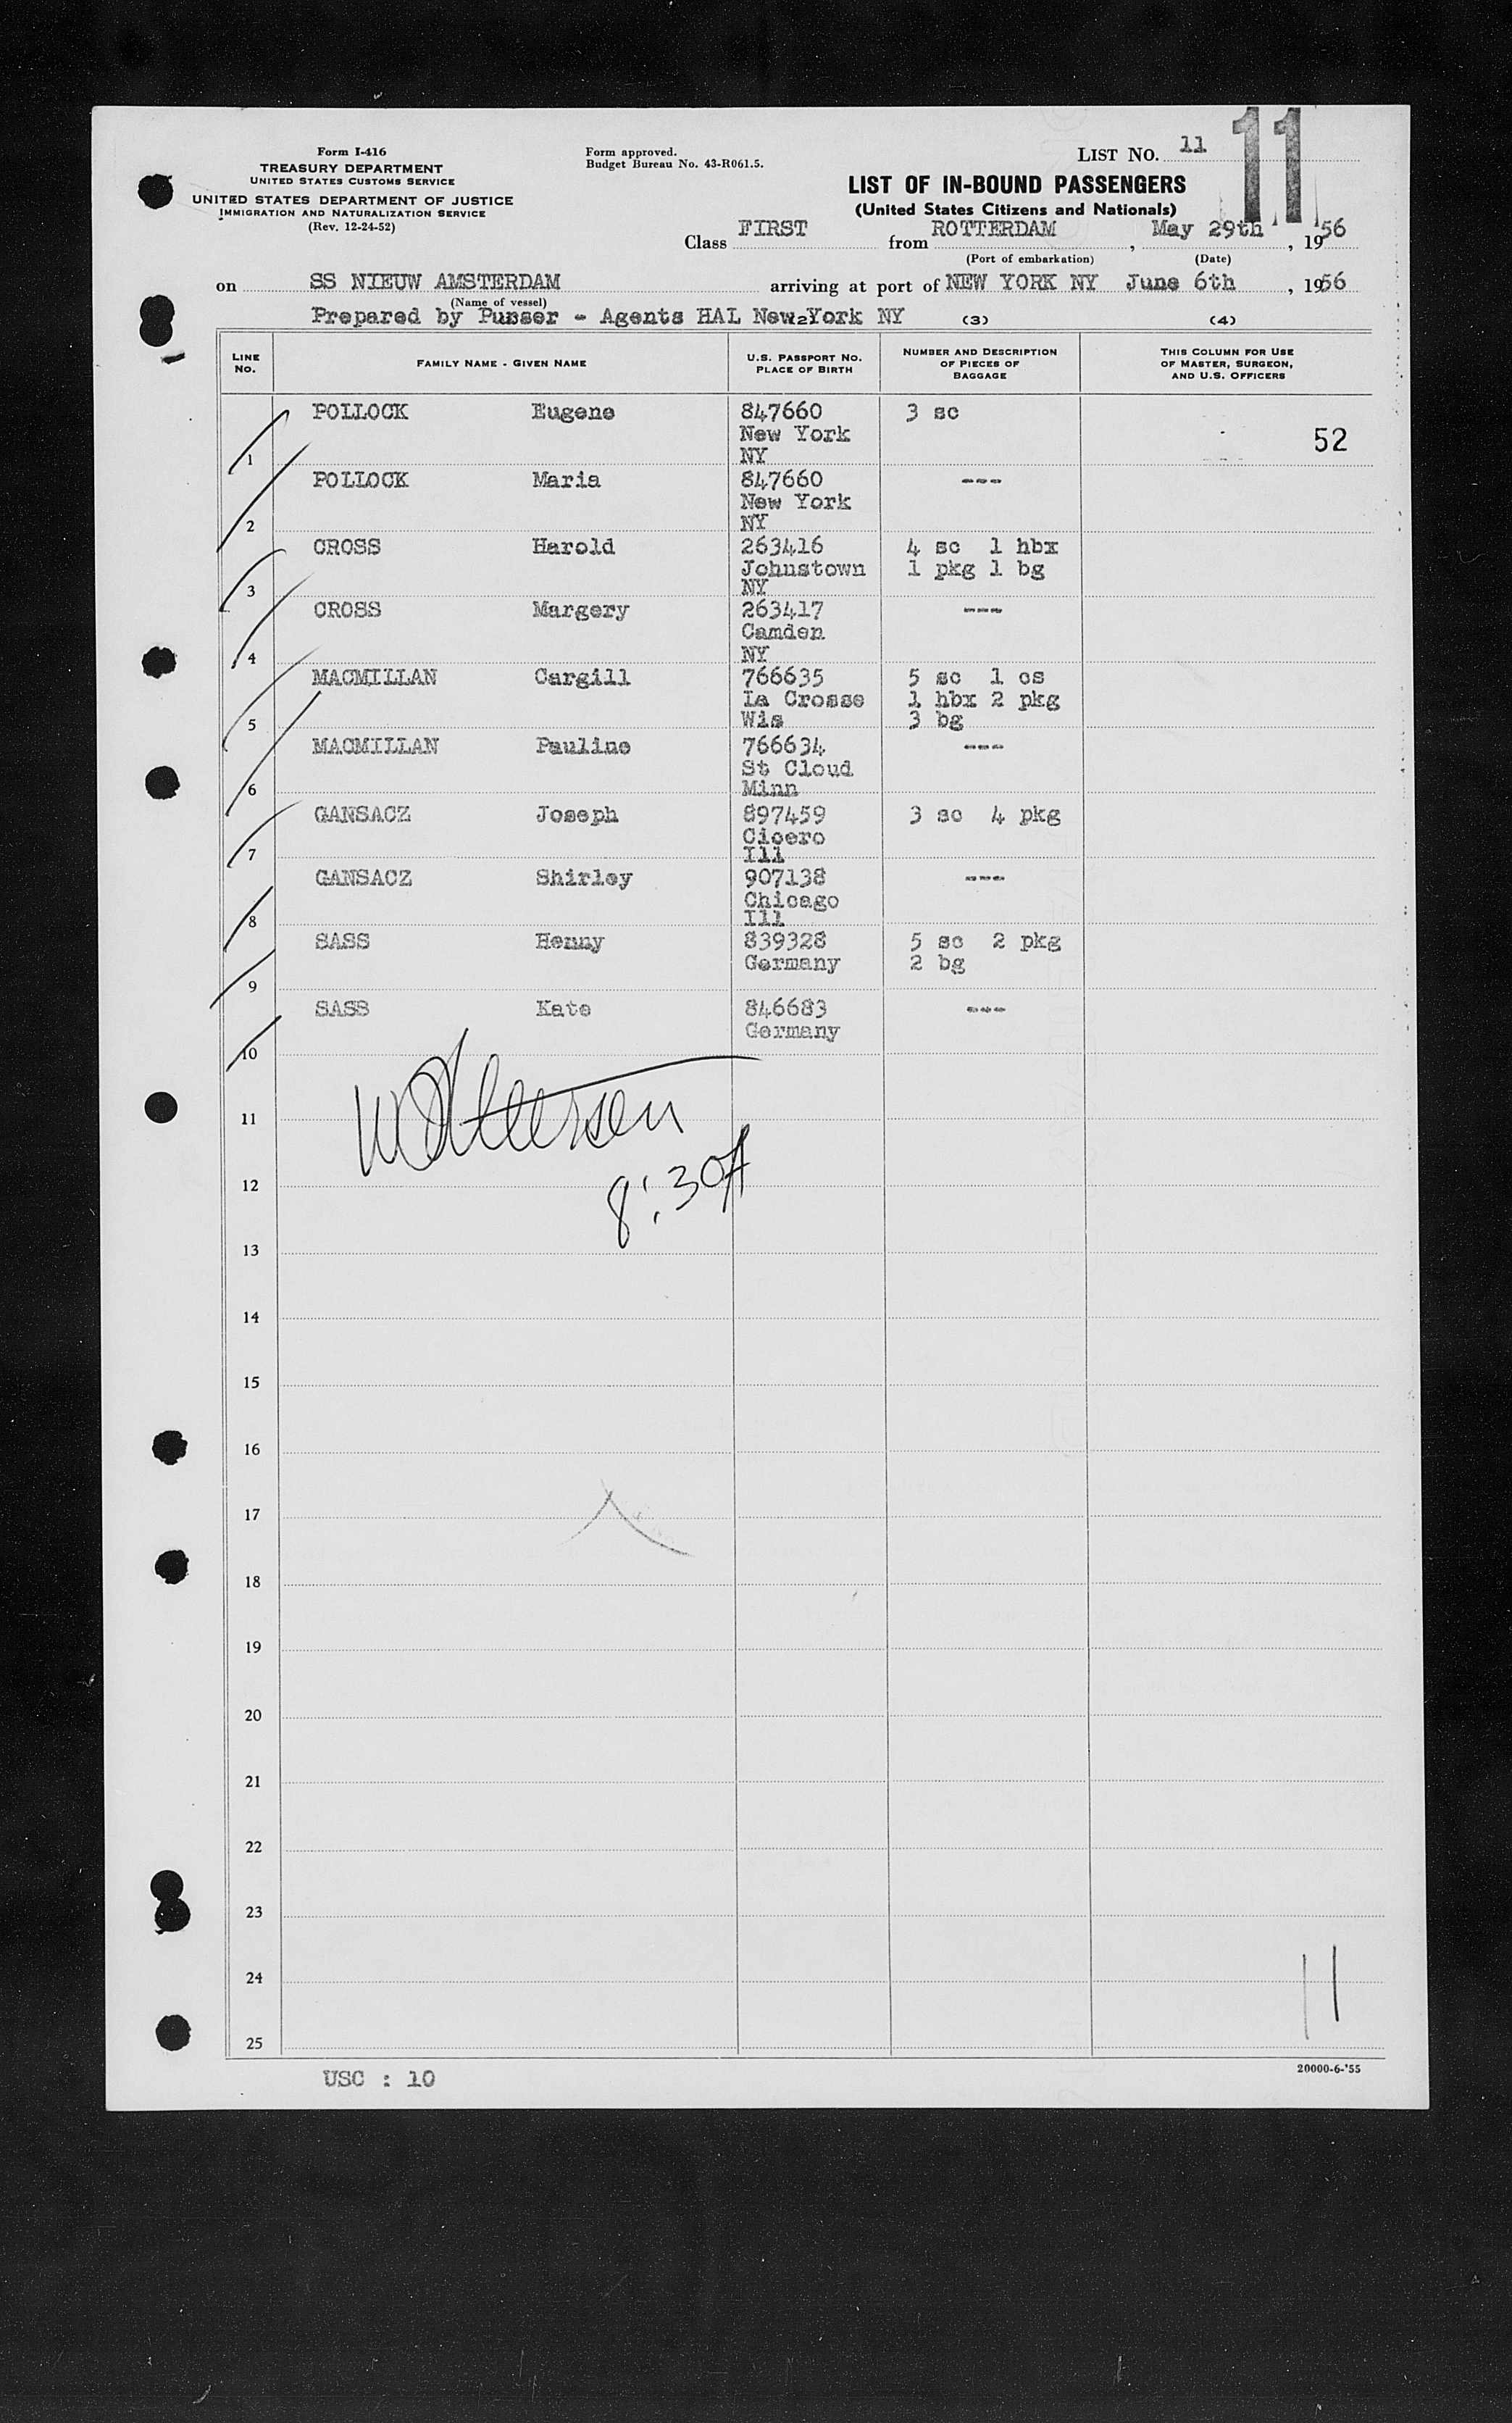 Form I-416
TREASURY DEPARTMENT
UNITED STATES CUSTOMS SERVICE
UNITED STATES DEPARTMENT OF JUSTICE
IMMIGRATION AND NATURALIZATION SERVICE
(Rev. 12-24-52)
Form approved.
Budget Bureau No. 43-R061.5.
LIST NO. 11
11
LIST OF IN-BOUND PASSENGERS
(United States Citizens and Nationals)
Class FIRST from ROTTERDAM, May 29th, 1956
(Port of embarkation) (Date)
on SS NIEUW AMSTERDAM arriving at port of NEW YORK NY June 6th, 1956
(Name of vessel)
Prepared by Purser - Agents HAL New York NY (3) (4)
LINE NO. FAMILY NAME - GIVEN NAME U.S. PASSPORT NO. PLACE OF BIRTH NUMBER AND DESCRIPTION OF PIECES OF BAGGAGE THIS COLUMN FOR USE OF MASTER, SURGEON, AND U.S. OFFICERS
POLLOCK Eugene 847660 3 sc
New York 52
1 NY
POLLOCK Maria 847660 ---
New York
2 NY
CROSS Harold 263416 4 sc 1 hbx
Johnstown 1 pkg 1 bg
3 NY
CROSS Margery 263417 ---
Camden
4 NY
MACMILLAN Cargill 766635 5 sc 1 cs
La Crosse 1 hbx 2 pkg
5 Wis 3 bg
MACMILLAN Pauline 766634 ---
St Cloud
6 Minn
GANSACZ Joseph 897459 3 sc 4 pkg
Cicero
7 Ill
GANSACZ Shirley 907138 ---
Chicago
8 Ill
SASS Henny 839328 5 sc 2 pkg
Germany 2 bg
9
SASS Kate 846683 ---
Germany
10
11
8:30A
12
13
14
15
16
17
18
19
20
21
22
23
24
11
25
USC : 10
20000-6-'55